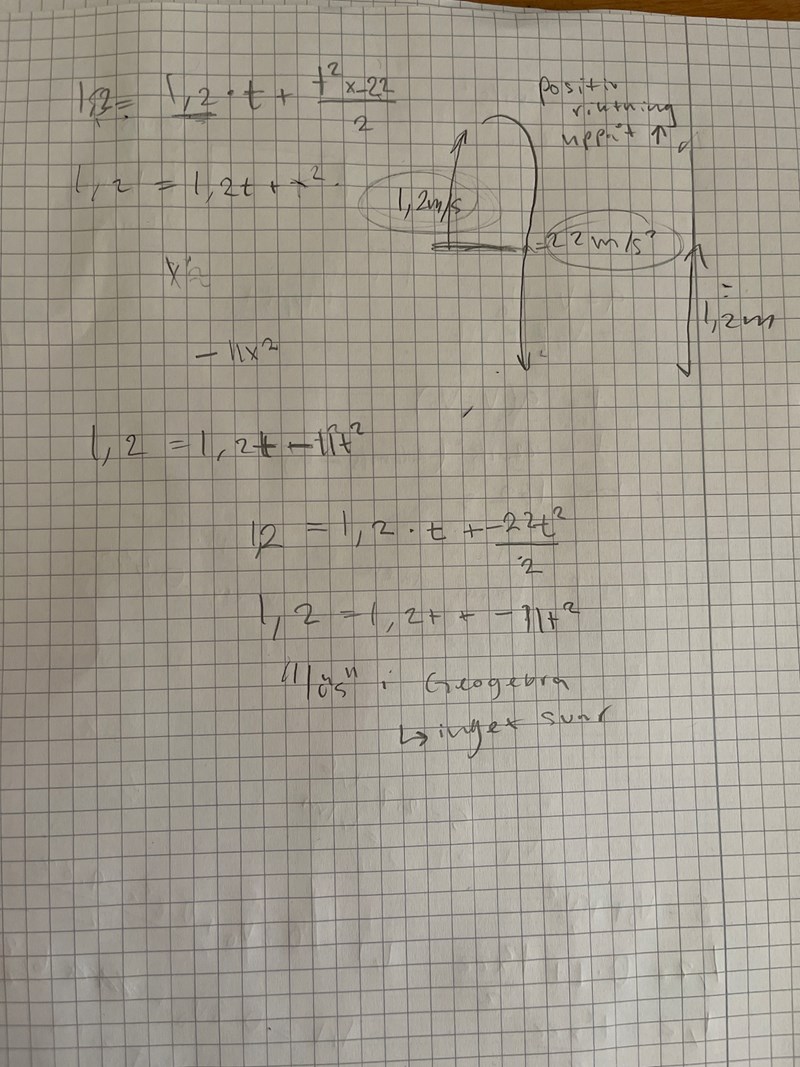 1,2 = 1,2 · t + t² x -22 / 2
positiv
riktning
uppåt ↑
1,2 = 1,2t + t²
1,2 m/s
= 22 m/s²
1,2 m
- 11x²
1,2 = 1,2t - 11t²
1,2 = 1,2 · t + -22t² / 2
1,2 = 1,2t + -11t²
"lös" i Geogebra
↳ inget svar